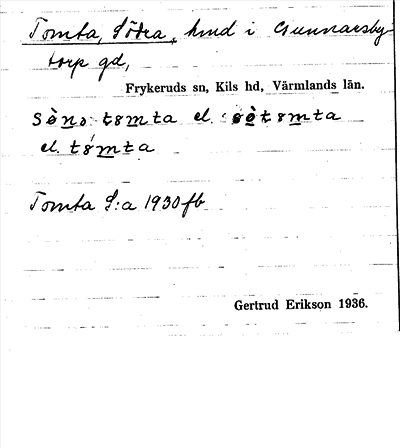 Tomta, Södra, hmd i Gunnarsby-
torp gd,
Frykeruds sn, Kils hd, Värmlands län.
el.
el.
Tomta S:a 1930 fb
Gertrud Erikson 1936.